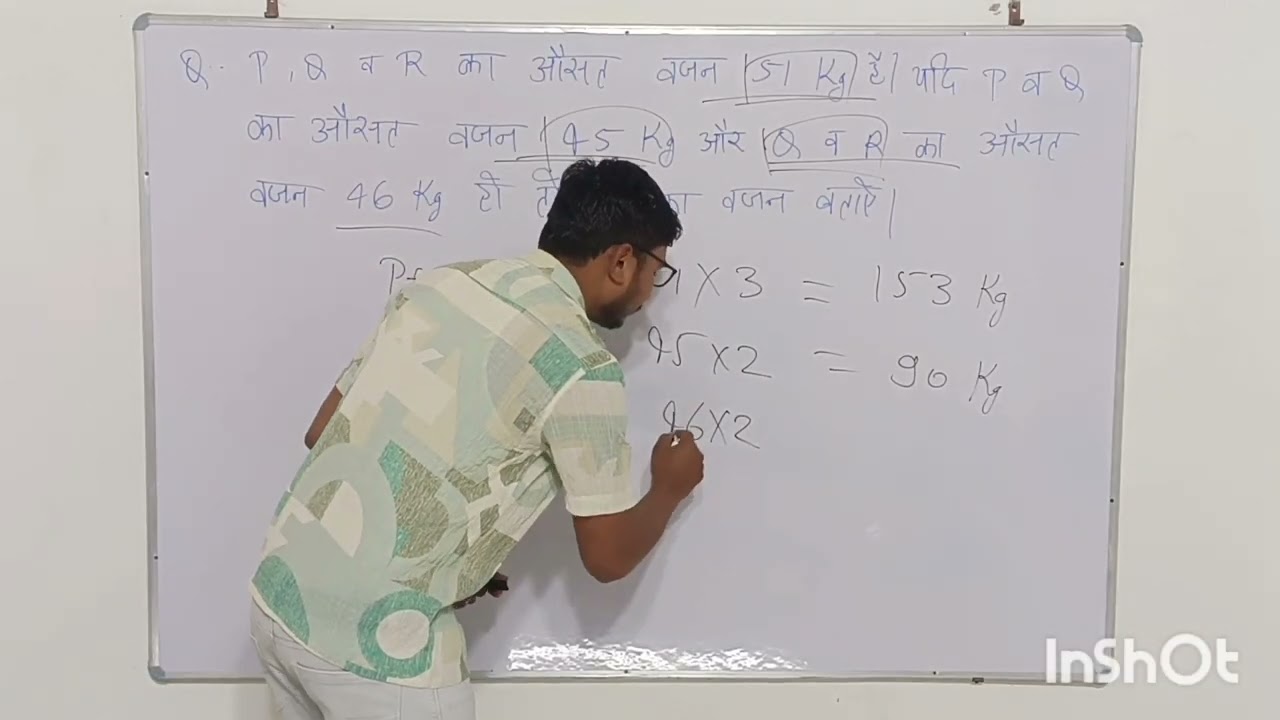 Q. P, Q व R का औसत वजन 51 Kg है। यदि P व Q
का औसत वजन 45 Kg और Q व R का औसत
वजन 46 Kg हो का वजन बताऐं।
1 X 3 = 153 Kg
45 X 2 = 90 Kg
46 X 2
InShOt